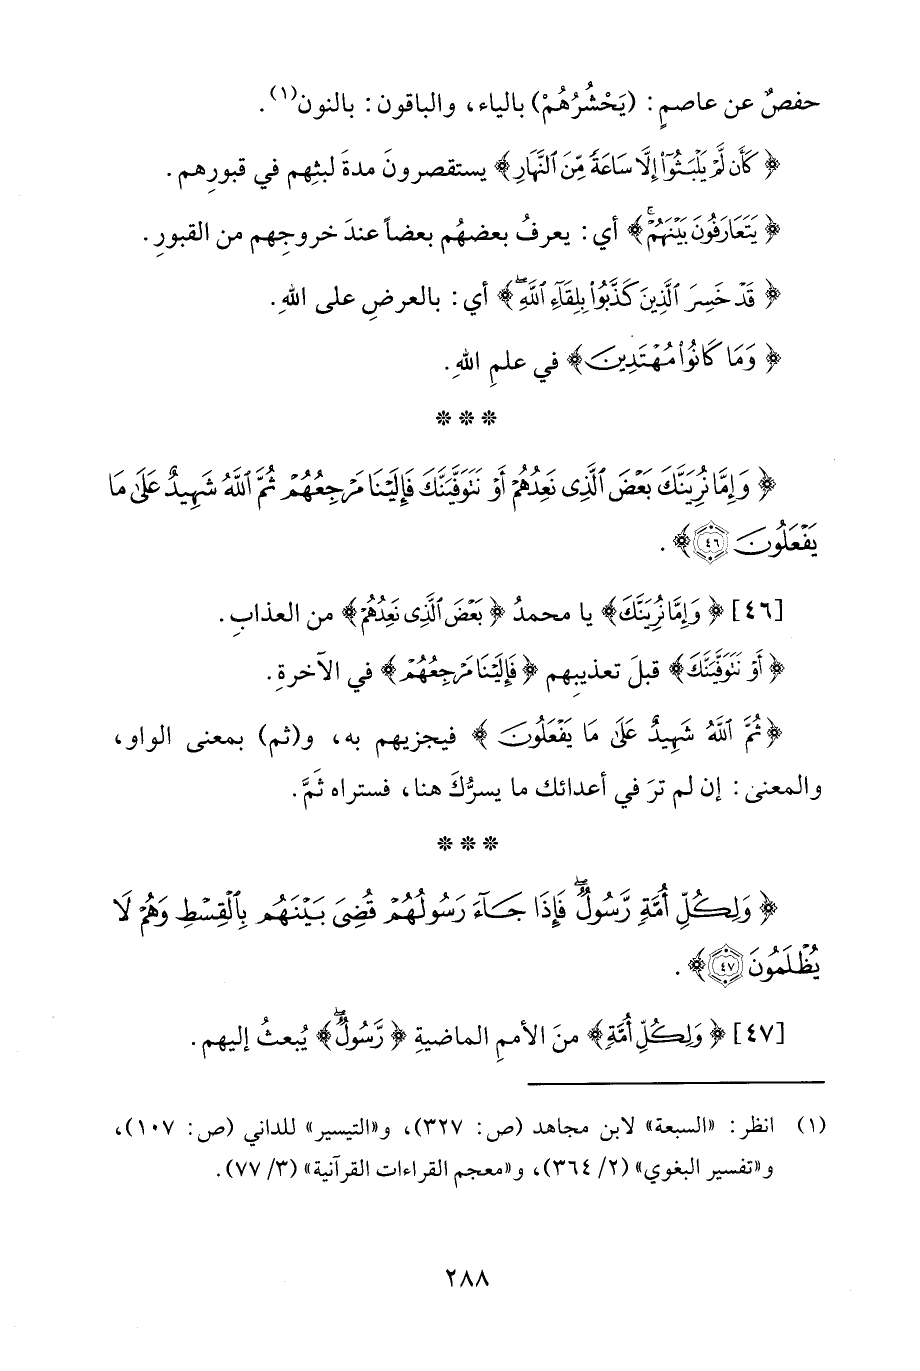 حفصٌ عن عاصمٍ: (يَحْشُرُهُمْ) بالياء، والباقون: بالنون(١).
﴿كَأَن لَّمْ يَلْبَثُوٓا۟ إِلَّا سَاعَةً مِّنَ ٱلنَّهَارِ﴾ يستقصرونَ مدةَ لبثِهم في قبورِهم.
﴿يَتَعَارَفُونَ بَيْنَهُمْ ۚ﴾ أي: يعرفُ بعضهُم بعضاً عندَ خروجِهم من القبورِ.
﴿قَدْ خَسِرَ ٱلَّذِينَ كَذَّبُوا۟ بِلِقَآءِ ٱللَّهِ ۖ﴾ أي: بالعرضِ على اللهِ.
﴿وَمَا كَانُوا۟ مُهْتَدِينَ﴾ في علمِ اللهِ.
* * *
﴿وَإِمَّا نُرِيَنَّكَ بَعْضَ ٱلَّذِى نَعِدُهُمْ أَوْ نَتَوَفَّيَنَّكَ فَإِلَيْنَا مَرْجِعُهُمْ ثُمَّ ٱللَّهُ شَهِيدٌ عَلَىٰ مَا
يَفْعَلُونَ ٤٦﴾.
[٤٦] ﴿وَإِمَّا نُرِيَنَّكَ﴾ يا محمدُ ﴿بَعْضَ ٱلَّذِى نَعِدُهُمْ﴾ من العذابِ.
﴿أَوْ نَتَوَفَّيَنَّكَ﴾ قبلَ تعذيبِهم ﴿فَإِلَيْنَا مَرْجِعُهُمْ﴾ في الآخرةِ.
﴿ثُمَّ ٱللَّهُ شَهِيدٌ عَلَىٰ مَا يَفْعَلُونَ﴾ فيجزيهم به، و(ثم) بمعنى الواو،
والمعنى: إن لم ترَ في أعدائك ما يسرُّكَ هنا، فستراه ثَمَّ.
* * *
﴿وَلِكُلِّ أُمَّةٍ رَّسُولٌ ۖ فَإِذَا جَآءَ رَسُولُهُمْ قُضِىَ بَيْنَهُم بِٱلْقِسْطِ وَهُمْ لَا
يُظْلَمُونَ ٤٧﴾.
[٤٧] ﴿وَلِكُلِّ أُمَّةٍ﴾ منَ الأممِ الماضيةِ ﴿رَّسُولٌ ۖ﴾ يُبعثُ إليهم.
(١) انظر: «السبعة» لابن مجاهد (ص: ٣٢٧)، و«التيسير» للداني (ص: ١٠٧)،
و«تفسير البغوي» (٢/ ٣٦٤)، و«معجم القراءات القرآنية» (٣/ ٧٧).
٢٨٨